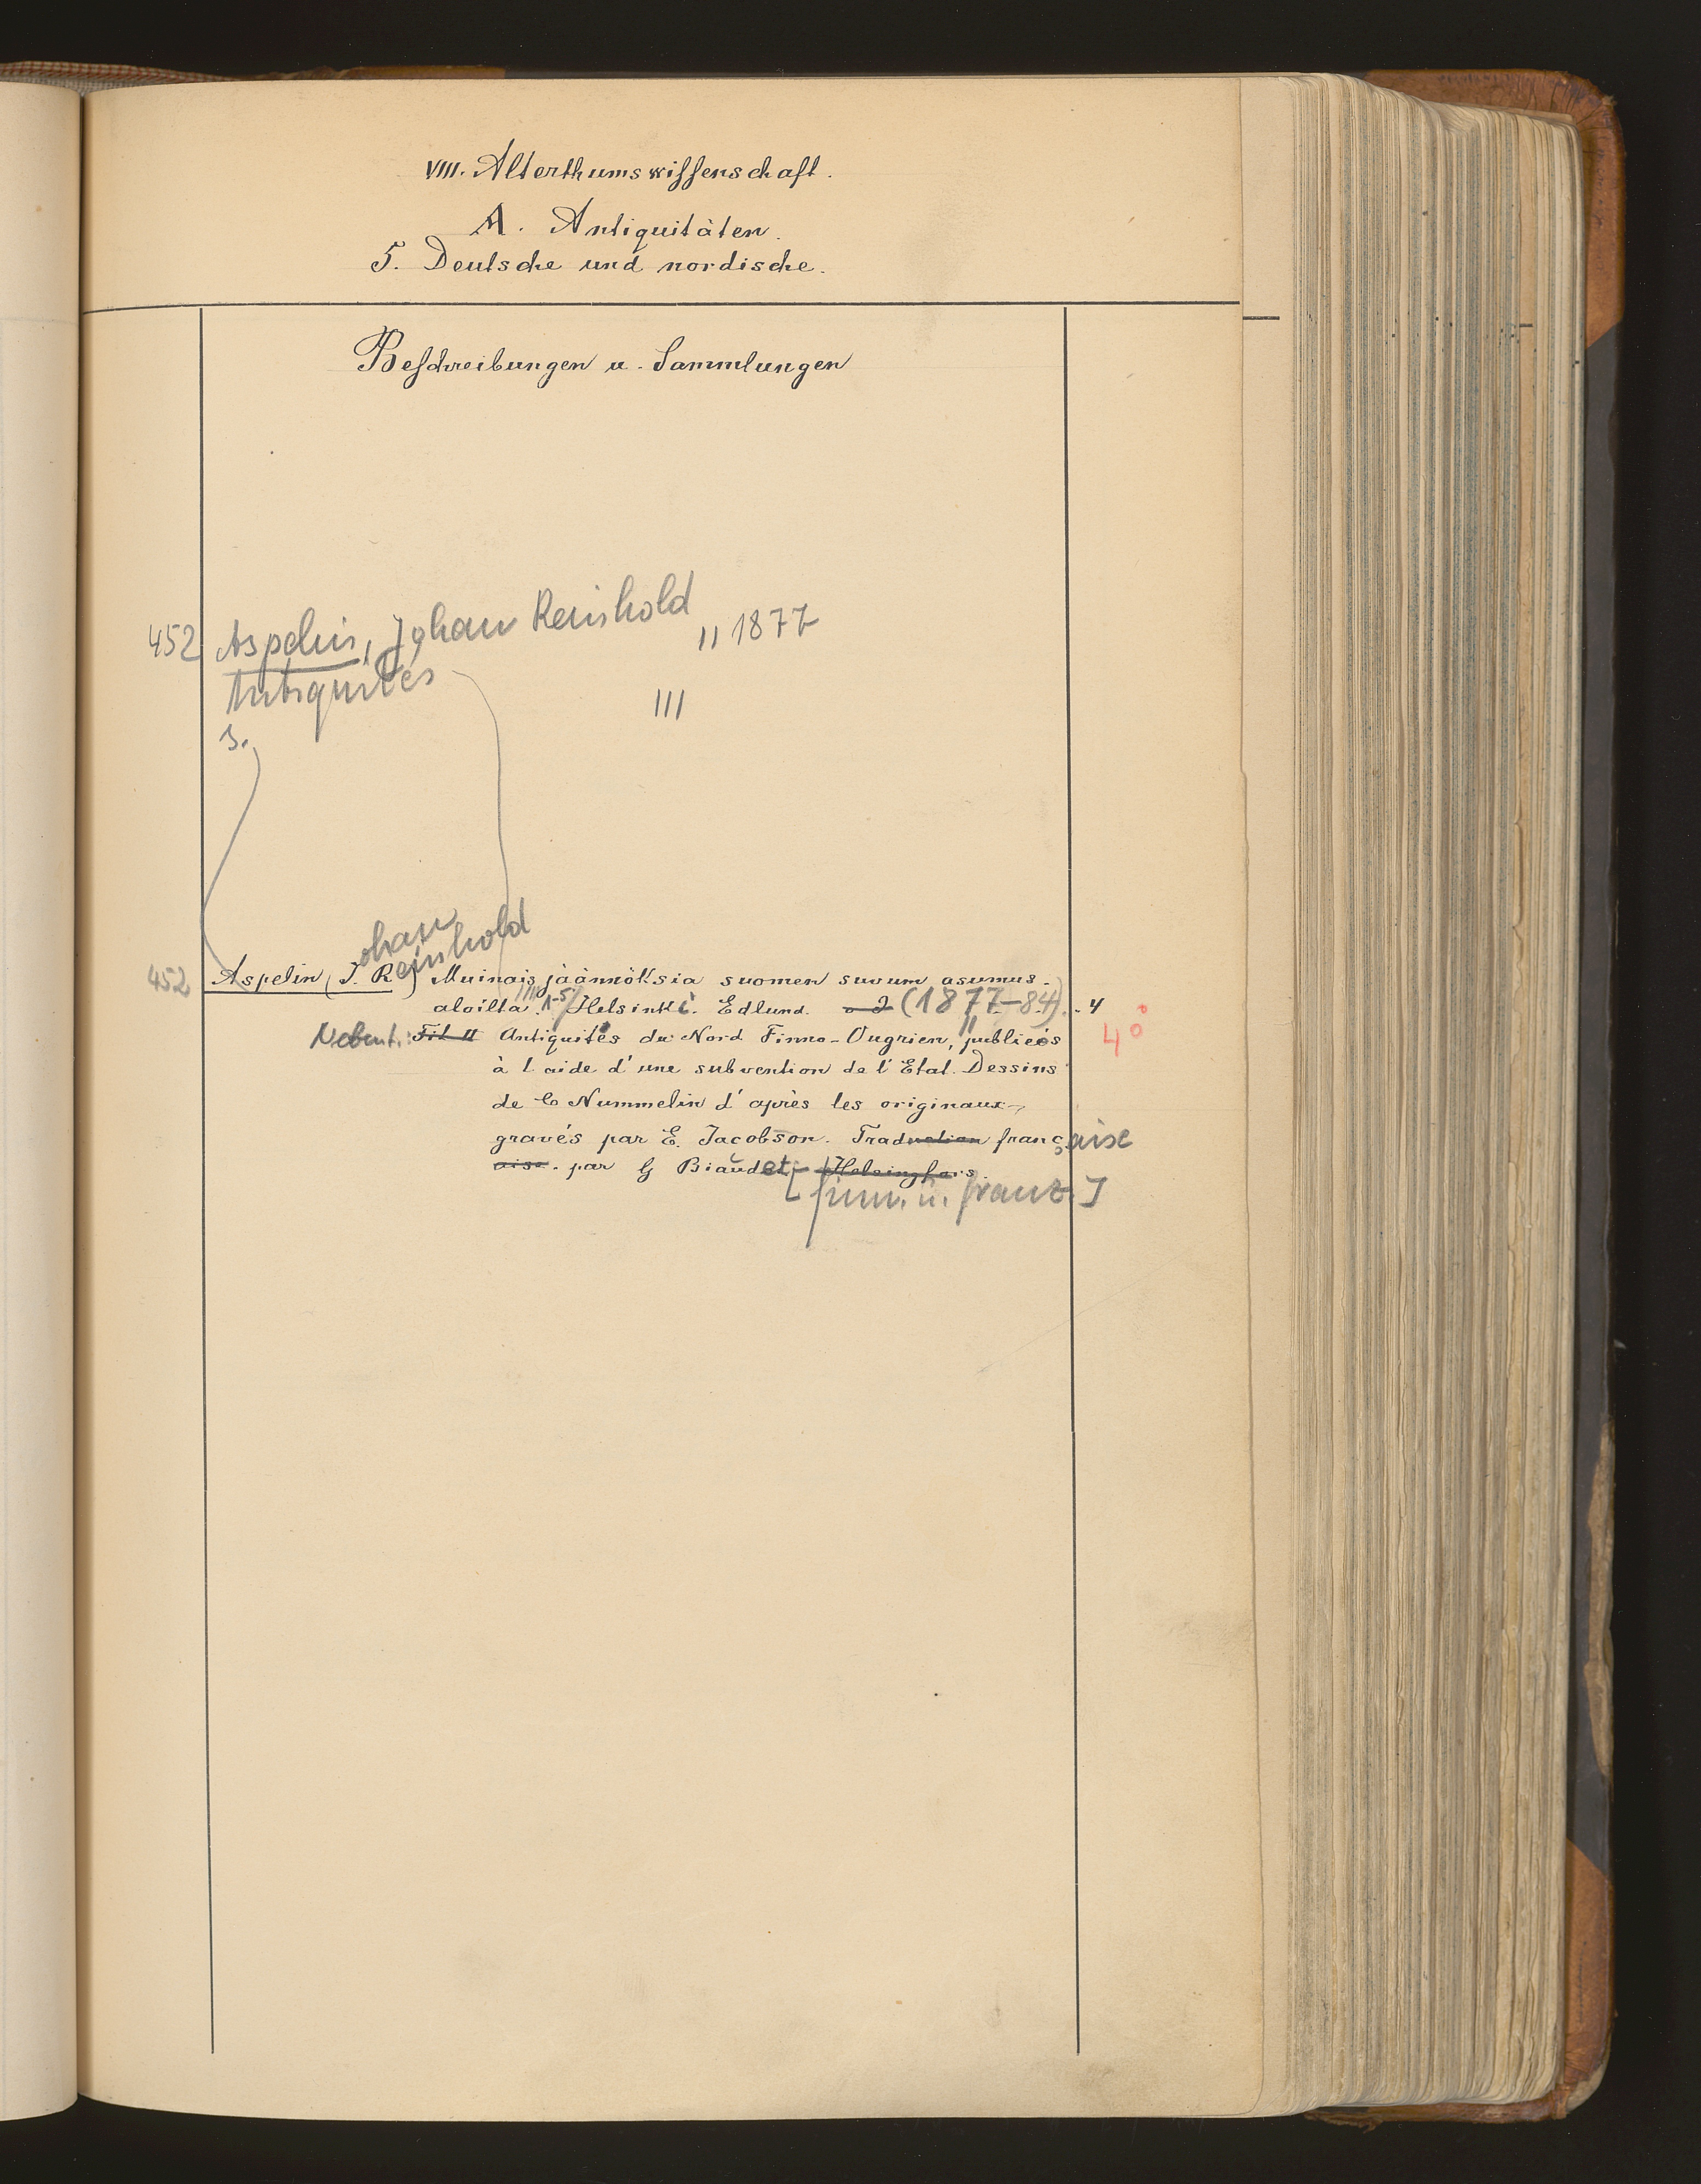 VIII. Alterthumswissenschaft.
A. Antiquitäten.
5. Deutsche und nordische.
Beschreibungen u. Sammlungen
452 Aspelin, Johan Reinhold // 1877
Antiquités
///
s.
ohan
Reinhold
452 Aspelin (J. R.) Muinaisjäännöksiä suomen suvum asumus-
aloilta. /// 1-5/ Helsinki. Edlund. o J (1877-84). 4°
Nebent.: Tit II Antiquités du Nord Finno-Ougrien, // publiées 4°
à l aide d'une subvention de l'Etat. Dessins
de C Nummelin d'après les originaux
gravés par E. Jacobson. Traduction française
aise. par G Biaudet. Helsingfors.
[finn. u. franz.]